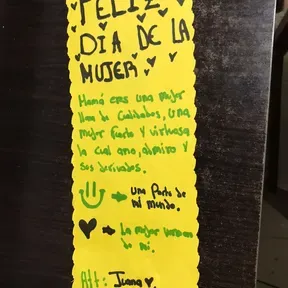 FELIZ
DIA DE LA
MUJER
Mamá eres una mujer
llena de Cualidades, una
mujer fuerte y virtuosa
la cual amo, admiro y
sus derivados.
una Parte de
mi mundo.
La mejor
de mi.
Att: Juana